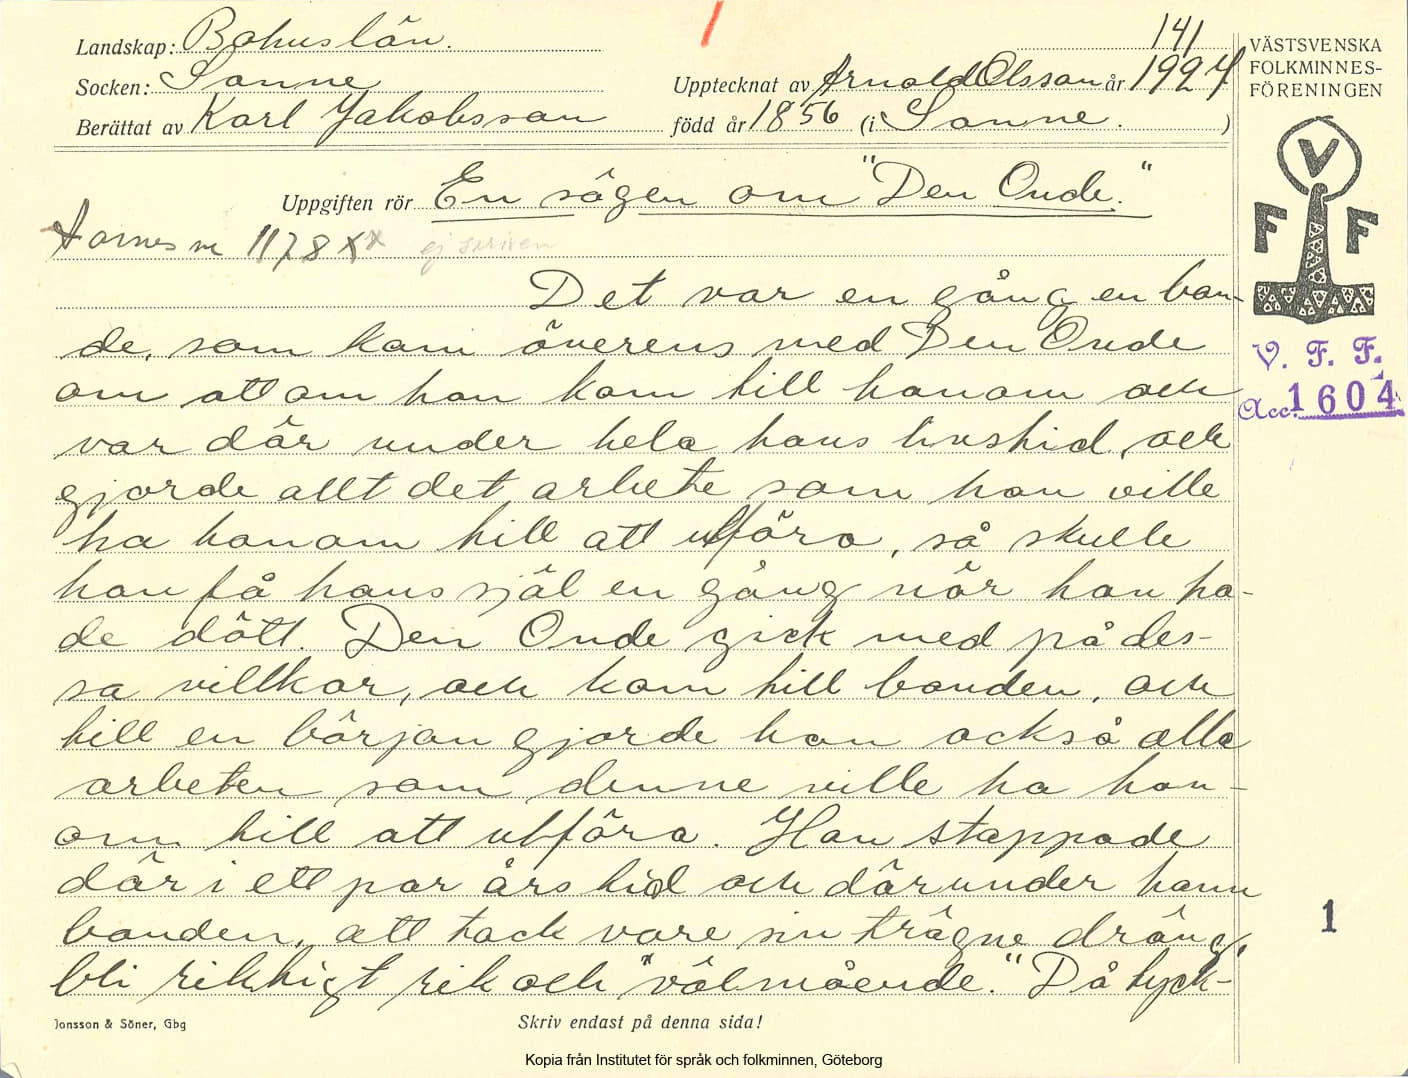 141
Landskap: Bohuslän.
VÄSTSVENSKA
FOLKMINNES-
FÖRENINGEN
Socken: Sanne Upptecknat av Arnold Olsson år 1927
Berättat av Karl Jakobsson född år 1856 (i Sanne.)
Uppgiften rör En sägen om "Den Onde."
V
F F
Aarnes nr 1178 x x ej skriven
Det var en gång en bon-
de, som kom överens med Den Onde
om att om han kom till honom och
var där under hela hans livstid, och
gjorde allt det arbete som han ville
ha honom till att utföra, så skulle
han få hans själ en gång när han ha-
de dött. Den Onde gick med på des-
sa villkor, och kom till bonden, och
till en början gjorde han också alla
arbeten som denne ville ha hon-
om till att utföra. Han stoppade
där i ett par års tid och därunder hann
bonden, att tack vare sin trägne dräng,
bli riktigt rik och "välmående." Då tyck-
V. F. F.
Acc. 1604
1
Jonsson & Söner, Gbg
Skriv endast på denna sida!
Kopia från Institutet för språk och folkminnen, Göteborg